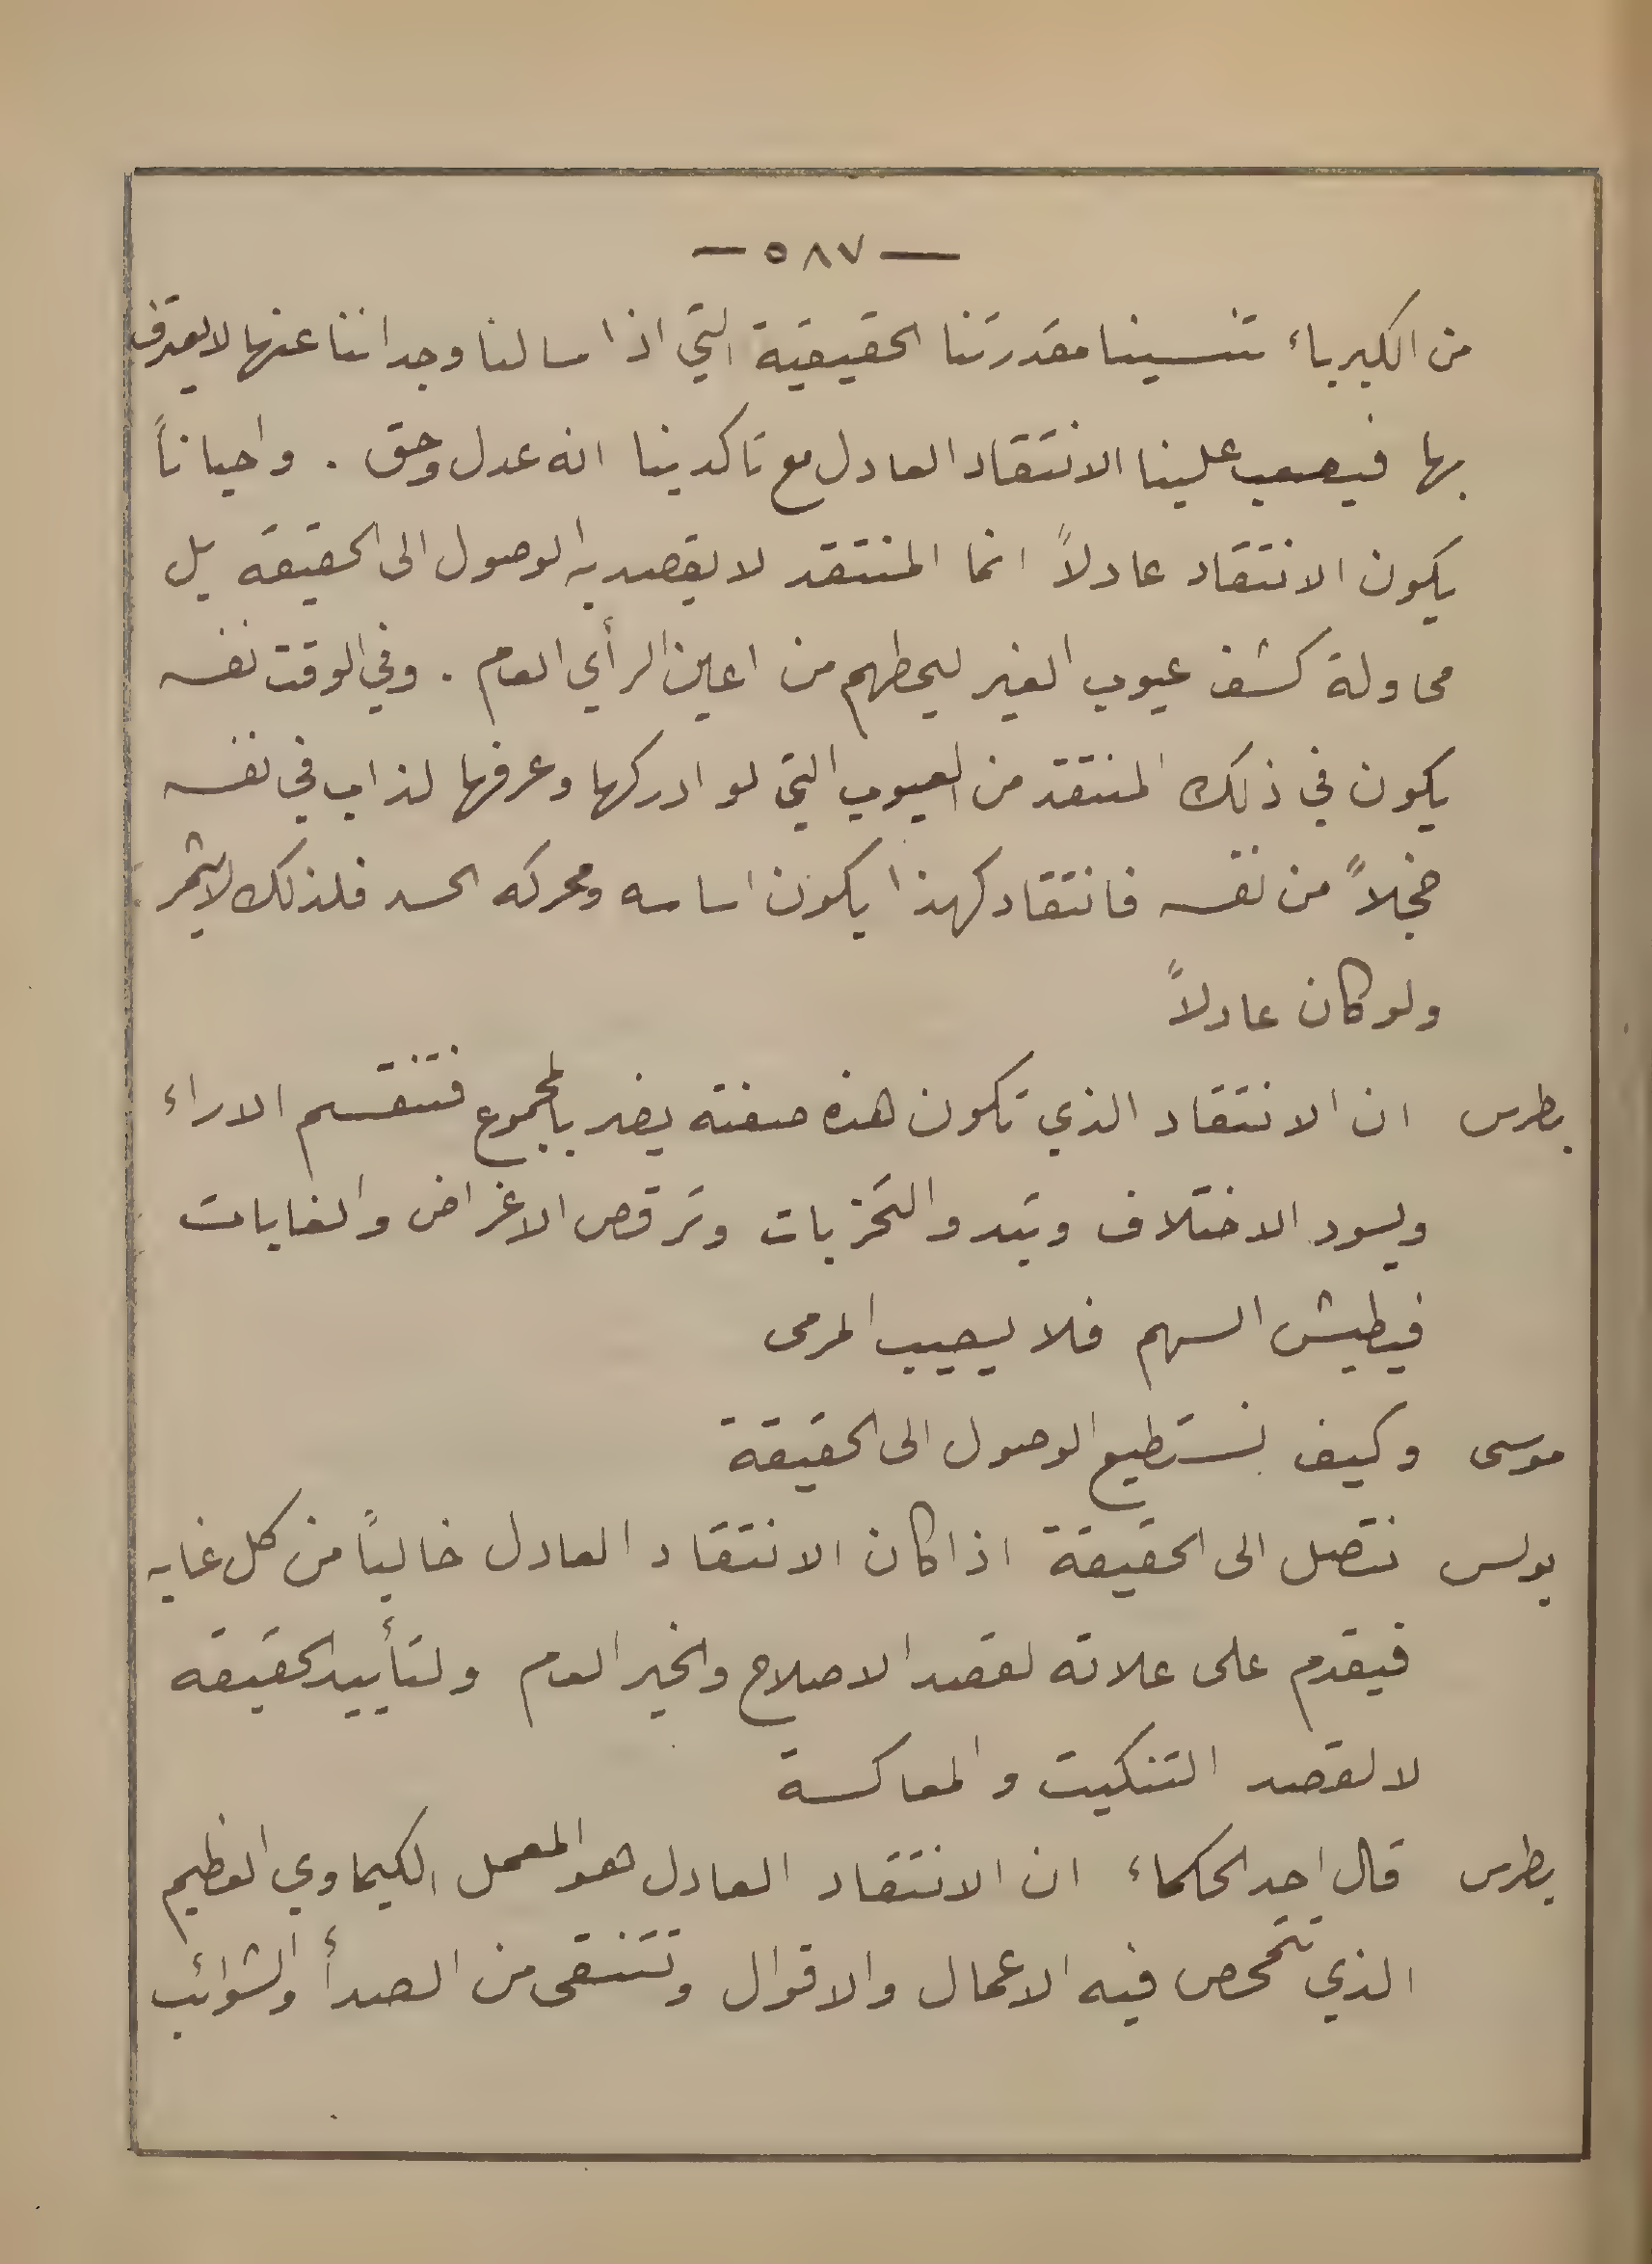 — ٥٨٧ —
من الكبرياء تنسينا مقدرتنا الحقيقية التي اذا سالنا وجداننا عنها لا يعترف
بها فيصعب علينا الانتقاد العادل مع تاكدينا انه عدل وحق . واحياناً
يكون الانتقاد عادلاً انما المنتقد لا يقصد به الوصول الى الحقيقه بل
محاولة كشف عيوب الغير ليحطهم من اعين الرأي العام . وفي الوقت نفسه
يكون في ذلك المنتقد من العيوب التي لو ادركها وعرفها لذاب في نفسه
خجلاً من نفسه فانتقاد كهذا يكون اساسه ومحركه الحسد فلذلك لا يثمر
ولو كان عادلاً
بطرس ان الانتقاد الذي تكون هذه صفته يضر بالمجموع فتنقسم الاراء
ويسود الاختلاف وتبدو التحزبات وترقص الاغراض والغايات
فيطيش السهم فلا يصيب المرمى
موسى وكيف نستطيع الوصول الى الحقيقة
بولس نتصل الى الحقيقة اذا كان الانتقاد العادل خالياً من كل غايه
فيقدم على علاته لقصد الاصلاح والخير العام ولتأييد الحقيقه
لا لقصد التنكيت والمعاكسة
بطرس قال احد الحكماء ان الانتقاد العادل هو المعمل الكيماوي العظيم
الذي تتمحص فيه الاعمال والاقوال وتتنقى من الصدأ والشوائب